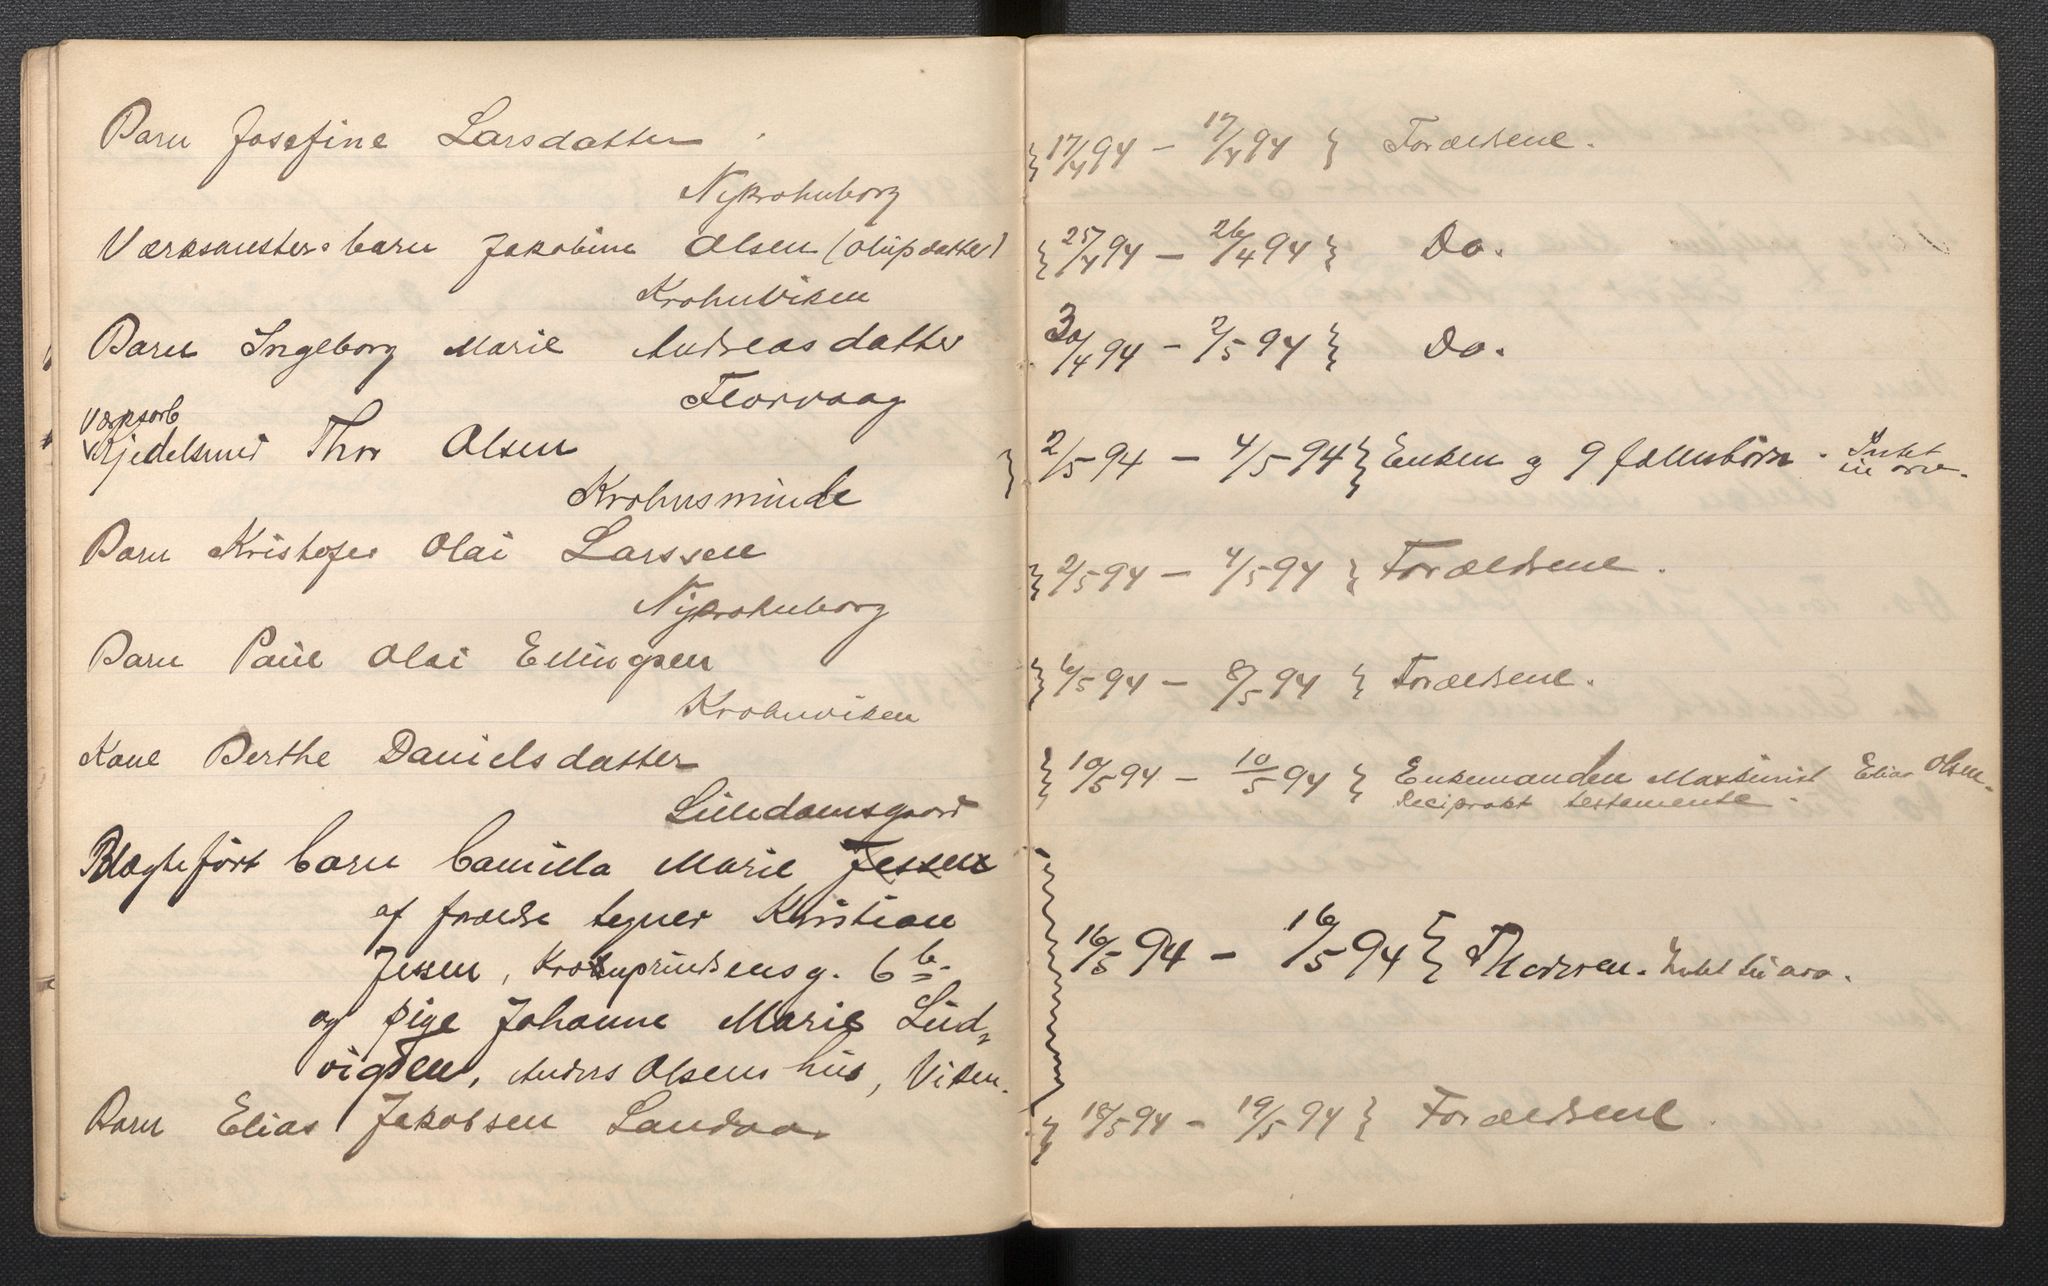 Barn Josefine Larsdatter
Nykrohnborg
Værksmesters barn Jakobine Olsen (Olufsdatter)
Krohnviken
Barn Ingeborg Marie Andreasdatter
Florvaag
Værksarb
Kjedelsmed Thor Olsen
Krohnsminde
Barn Kristofer Olai Larssen
Nykrohnborg
Barn Paul Olai Ellingsen
Krohnviken
Kone Berthe Danielsdatter
Lilledamsgaard
Uægtefört barn Camilla Marie Jessen
af forældre tegner Kristian
Jessen, Kronprindsensg. 6 b.
og pige Johanne Marie Lud-
vigsen, Anders Olsens hus, Viken.
Barn Elias Jakobsen Landaas
17/4 94 – 17/4 94 } Forældrene.
25/4 94 – 26/4 94 } Do.
30/4 94 – 2/5 94 } Do.
2/5 94 – 4/5 94 } Enken og 9 fællesbörn. Intet
til arv.
2/5 94 – 4/5 94 } Forældrene.
6/5 94 – 8/5 94 } Forældrene.
10/5 94 – 10/5 94 } Enkemanden Maskinist Elias Olsen.
Reciprokt testamente.
16/5 94 – 16/5 94 } Moderen. Intet til arv.
18/5 94 – 19/5 94 } Forældrene.